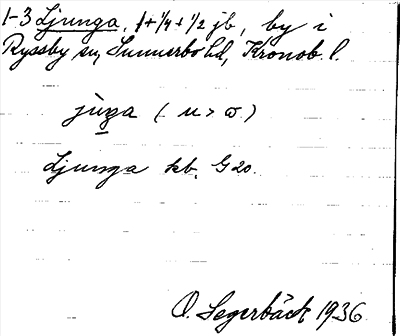 1-3 Ljunga, 1+1/4+1/2 jb, by i
Ryssby sn, Sunnerbo hd, Kronob. l.
jùga (u > ω)
Ljunga kb. G 20.
O. Segerbäck 1936